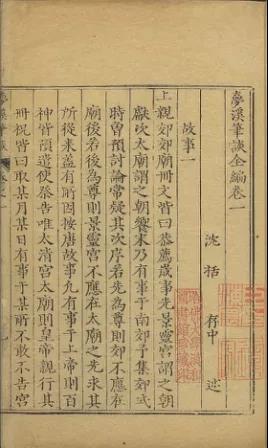 夢溪筆談全編卷一
沈括 存中 述
故事一
上親郊郊廟冊文皆曰恭薦歲事先景靈宮謂之朝
獻次太廟謂之朝饗末乃有事于南郊予集郊式
時曾預討論常疑其次序若先為尊則郊不應在
廟後若後為尊則景靈宮不應在太廟之先求其
所從來蓋有所因按唐故事凡有事于上帝則百
神皆預遣使祭告唯太清宮太廟則皇帝親行其
冊祝皆曰取某月某日有事于某所不敢不告宮